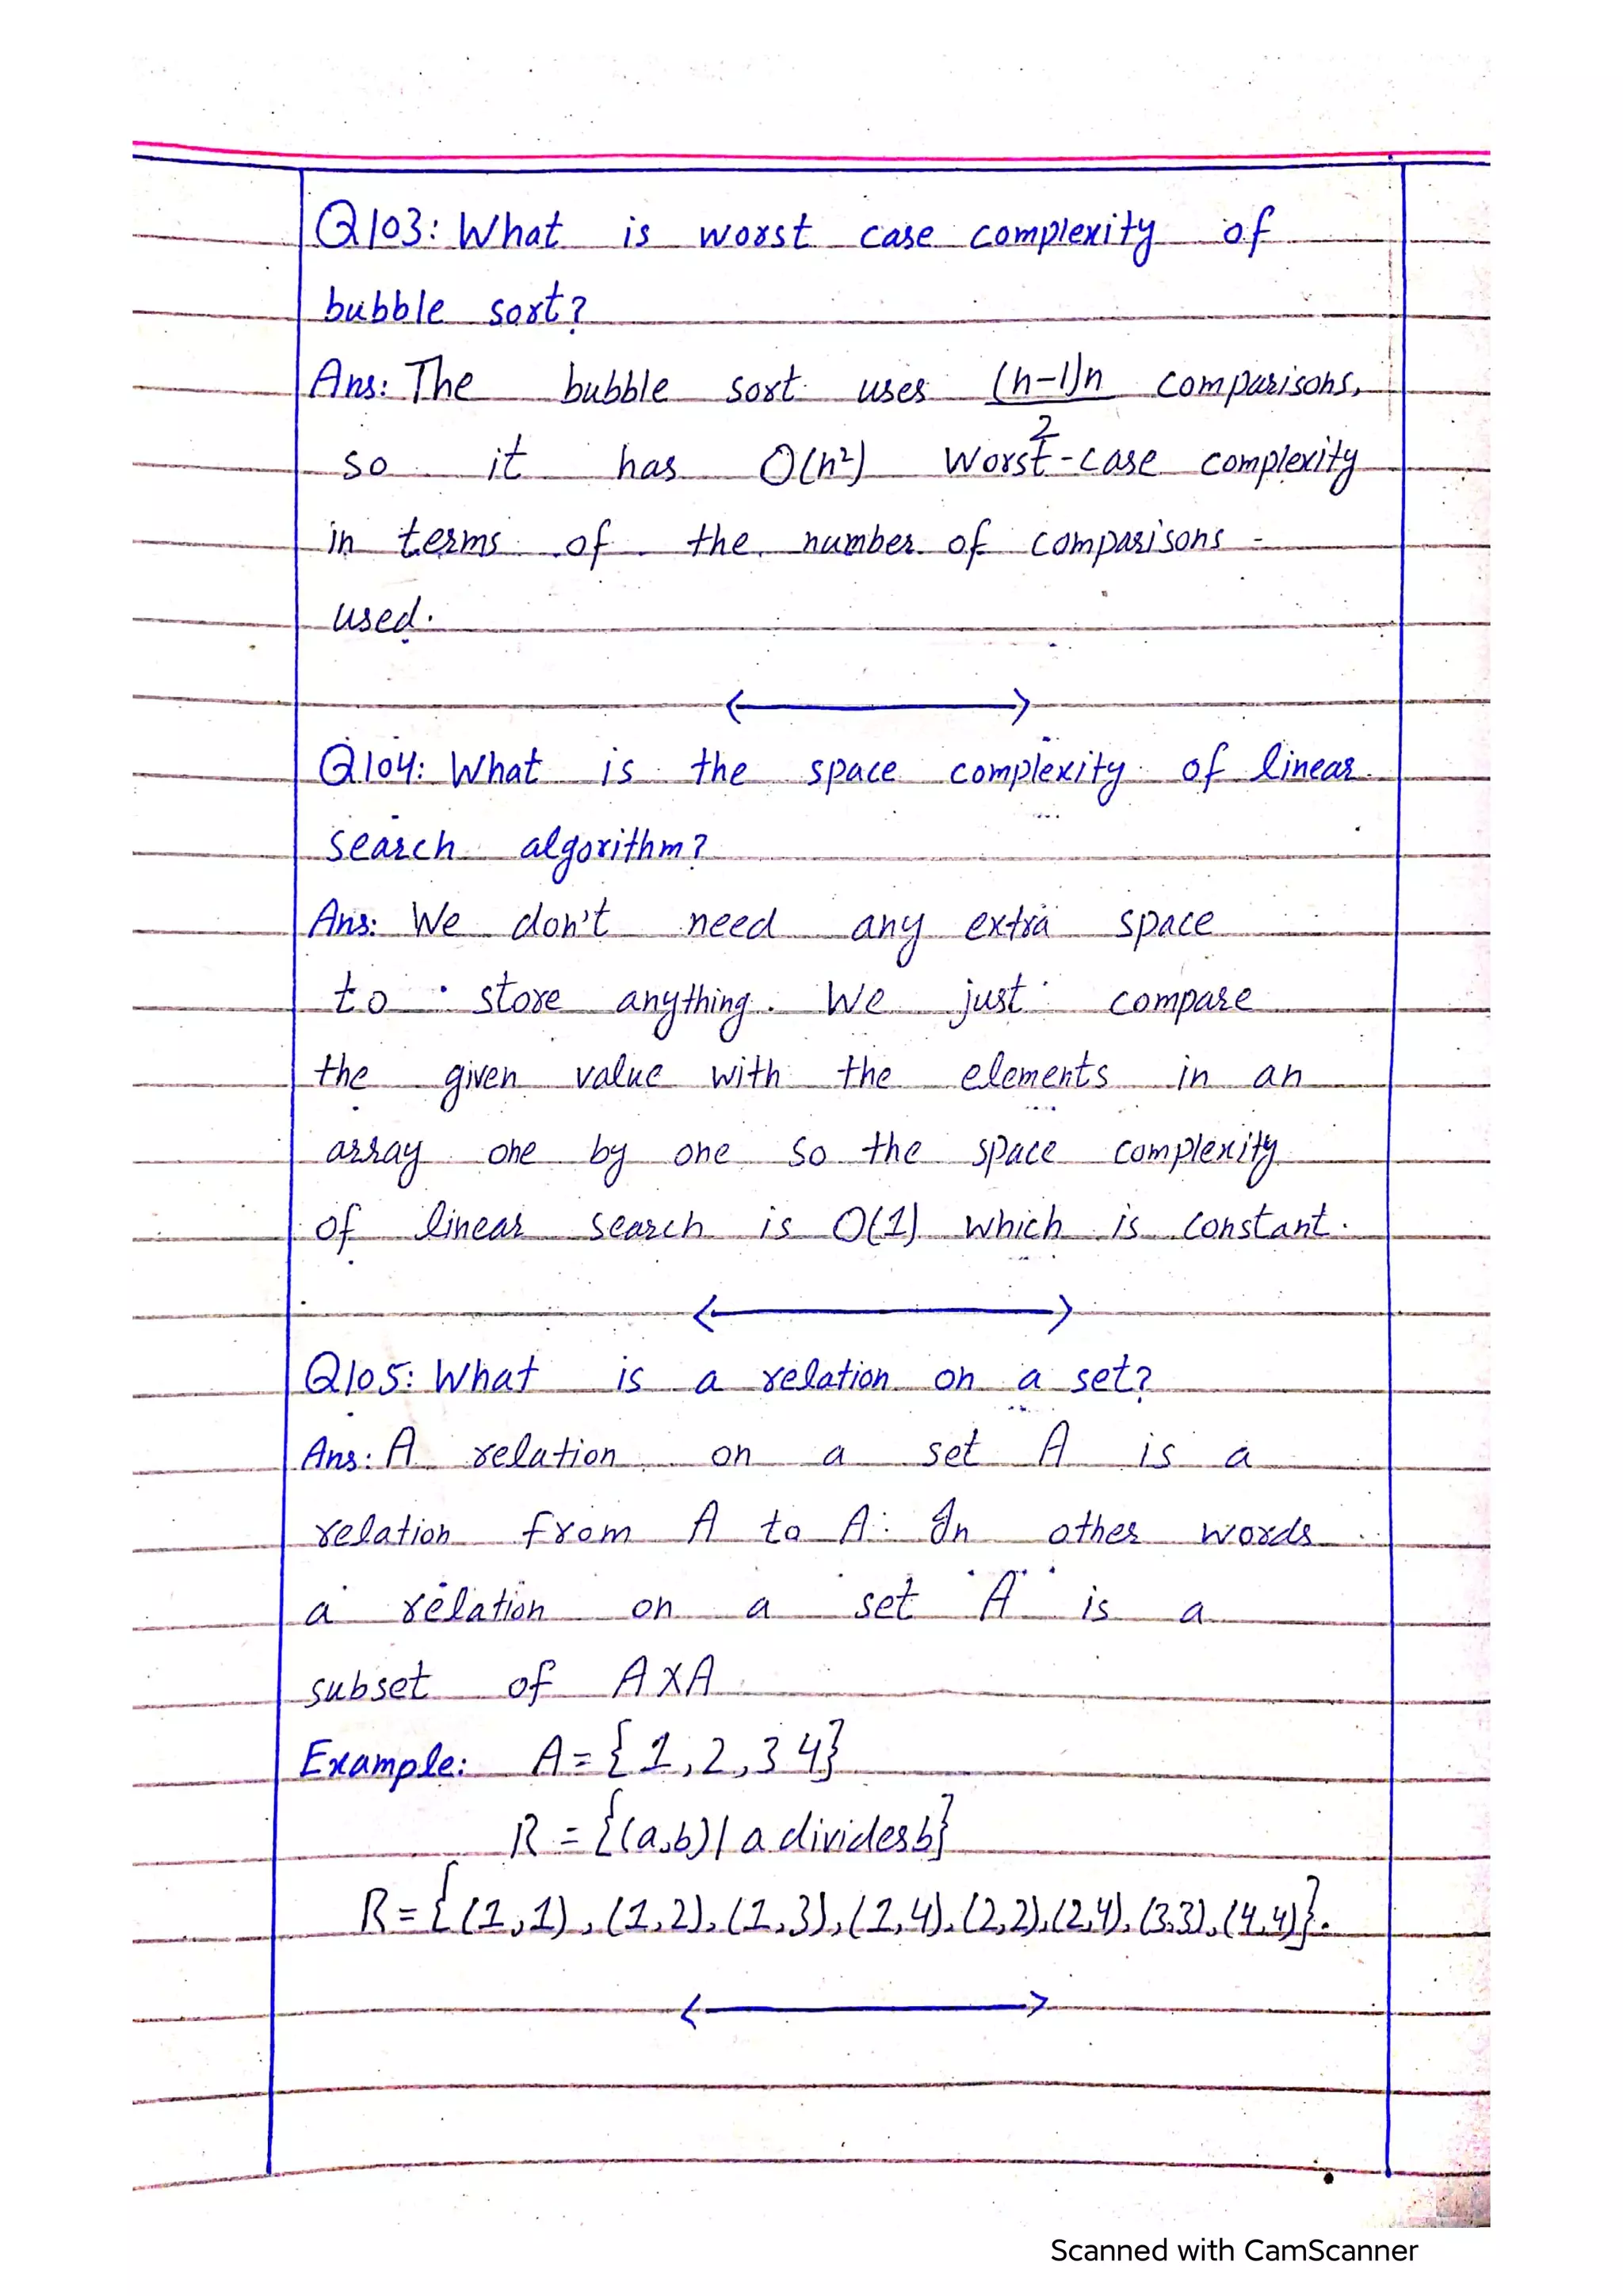 Q103: What is worst case complexity of
bubble sort?
Ans: The bubble sort uses (n-1)n/2 comparisons,
so it has O(n²) worst-case complexity
in terms of the number of comparisons -
used.
Q104: What is the space complexity of linear
search algorithm?
Ans: We don't need any extra space
to store anything. We just compare
the given value with the elements in an
array one by one so the space complexity
of linear search is O(1) which is constant.
Q105: What is a relation on a set?
Ans: A relation on a set A is a
relation from A to A. In other words
a relation on a set A is a
subset of A×A
Example: A = {1, 2, 3 4}
R = {(a,b) | a divides b}
R = {(1,1), (1,2), (1,3), (1,4), (2,2), (2,4), (3,3), (4,4)}.
Scanned with CamScanner